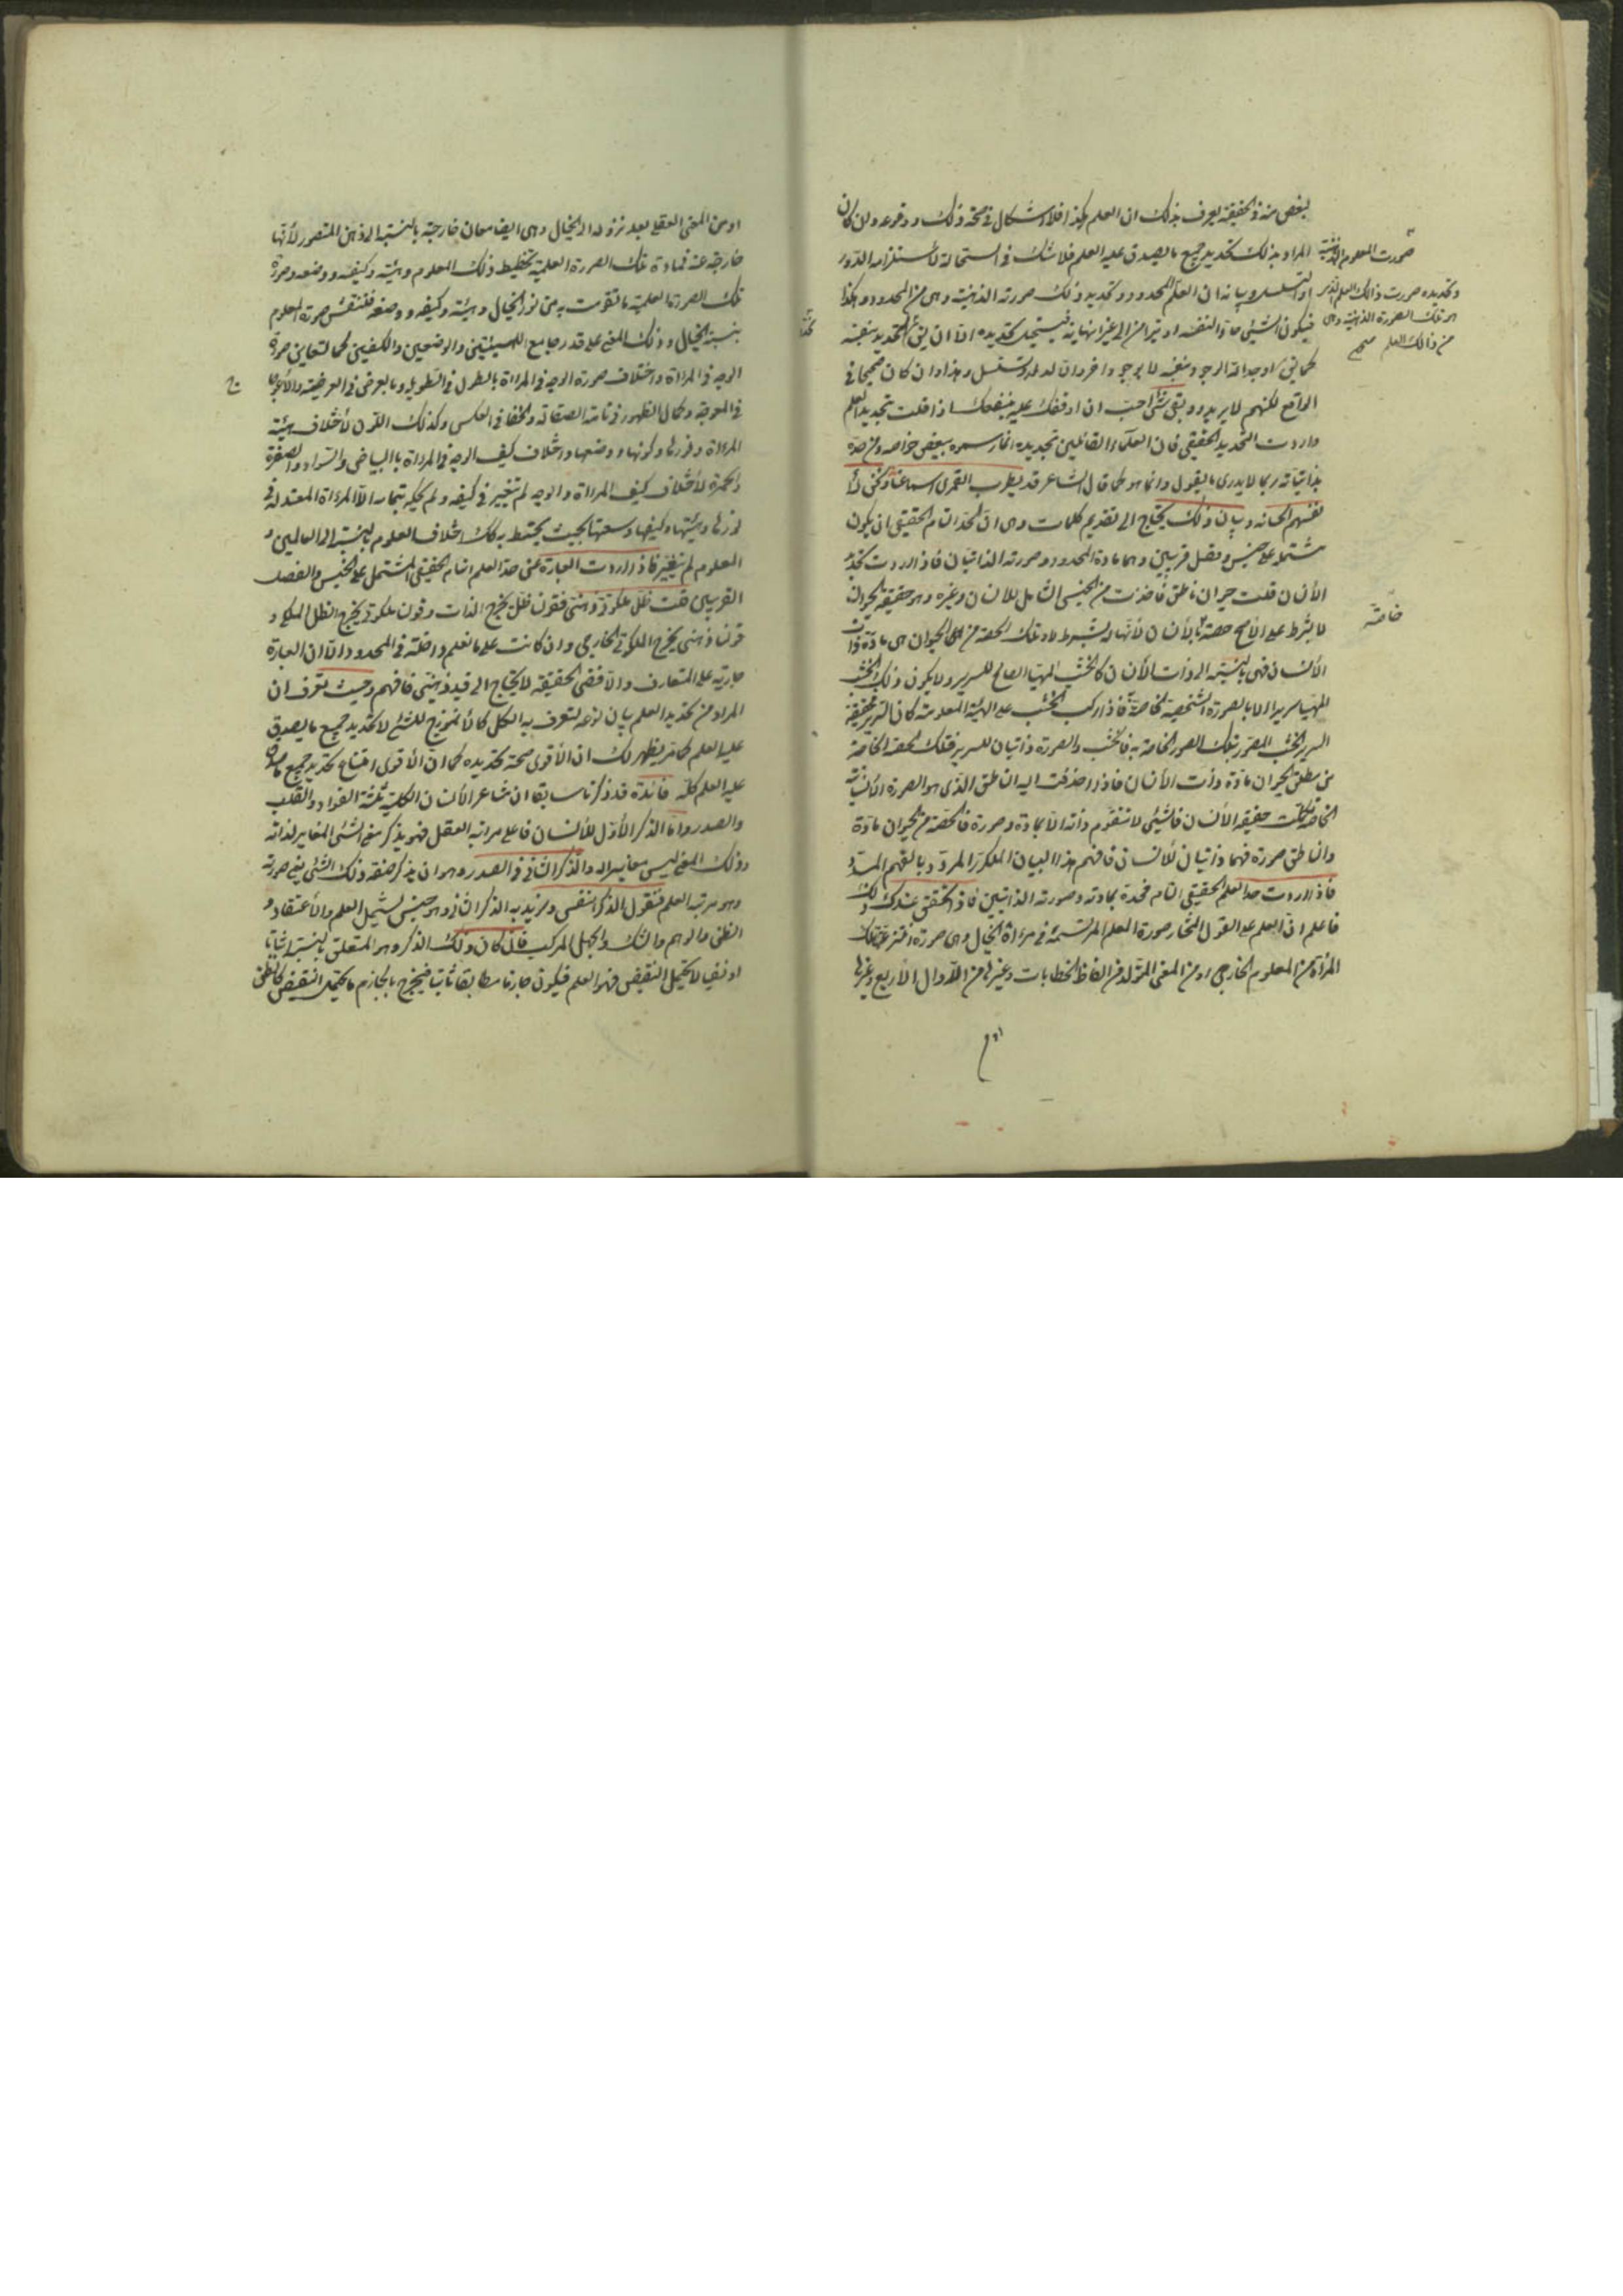 لبعض منه في الحقيقة يعرف بذلك ان العلم هكذا فلا اشكال في صحة ذلك ووقوعه وان كان
المراد بذلك تحديد جميع ما يصدق عليه العلم فلا شك في استحالة لاستلزامه الدور
او التسلسل وبيانه ان العلم المحدود وتحديد ذلك صورته الذهنية وهي من المحدود وهكذا
فيكون الشيئ حادا لنفسه او يترامى الى غير نهاية فيستحيل تحديده الا ان يقال التحديد بنفسه
كما يقال اوجد الله الوجود بنفسه لا بوجود اخر والا لدار او تسلسل وهذا وان كان صحيحا في
الواقع لكنهم لا يريدونه وبقي شئ احب ان اوقفك عليه ينفعك اذا قلت بتحديد العلم
واردت التحديد الحقيقي فان العلماء القائلين بتحديده انما رسموه ببعض خواصه ومن حده
بذاتياته ربما لا يدري ما يقول وانما هو كما قال الشاعر قد يطرب القمري اسماعنا ونحن لا
نفهم الحانه وبيان ذلك يحتاج الى تقديم كلمات وهي ان الحد التام الحقيقي ان يكون
مشتملا على جنس وفصل قريبين وهما مادة المحدود وصورته الذاتيان فاذا اردت تحديد
الأنسان قلت حيوان ناطق فاخذت من الجنس الشامل للانسان وغيره وهو حقيقة الحيوان
لا بشرط على الأصح حصة للأنسان لأنها له بشرط لا وتلك الحصة من الحيوان هي مادة ذات
الأنسان فهي بالنسبة الى ذات الأنسان كالخشب المهيا الصالح للسرير ولا يكون ذلك الخشب
المهيا سريرا الا بالصورة الشخصية الخاصة فاذا ركب الخشب على الهيئة المعلومة كان السرير فحقيقة
السرير الخشب المصور بتلك الصور الخاصة به فالخشب والصورة ذاتيان للسرير فتلك الحصة الخاصة
من مطلق الحيوان مادة ذات الأنسان فاذا اضفت اليه الناطق الذي هو الصورة الأنسانية
الخاصة تمت حقيقة الأنسان فالشيئ لا تتقوم ذاته الا بمادة وصورة فالحصة من الحيوان مادة
والناطق صورة فهما ذاتيان للأنسان فافهم هذا البيان المكرر المردد بالفهم المسدد
فاذا اردت حد العلم الحقيقي التام فحده بمادته وصورته الذاتيين فاذا تحقق عندك ذلك
فاعلم ان العلم على القول المختار صورة المعلم المرتسمة في مرءاة الخيال وهي صورة انتزعتها تلك
المرآة من المعلوم الخارجي او من المعنى المتولد من الفاظ الخطابات وغيرها من الدوال الاربع وغيرها
صورت المعلوم الذهنية
وتحديده صورت ذالك العلم الذي
هو تلك الصورة الذهنية وهي
من ذالك العلم صح
خاصة
او من المعنى العقلي بعد نزوله الى الخيال وهي ايضا معان خارجية بالنسبة الى ذهن المتصور لأنها
خارجة عنه فمادة تلك الصورة العلمية تخطيط ذلك المعلوم وهيئته وكيفه ووضعه وصورة
تلك الصورة العلمية ما تقومت به من نور الخيال وهيئته وكيفه ووضعه فتنتقش صورة المعلوم
بنسبة الخيال وذلك المعنى على قدر جامع للهيئتين والوضعين والكيفين كما تعاين صورة
الوجه في المرءاة واختلاف صورة الوجه في المرءاة بالطول في الطويلة وبالعرض في العريضة والأعوجاج
في المعوجة وكمال الظهور في تامة الصقالة والخفا في العكس وكذلك اللون لأختلاف هيئة
المرءاة ونورها وكونها ووضعها واختلاف كيف الوجه في المرءاة بالبياض والسواد والصفرة
والحمرة لأختلاف كيف المرءاة والوجه لم تتغير في كيفه ولم يحكه بتمامه الا المرءاة المعتدلة في
نورها وهيئتها وكيفها وسعتها بحيث يحيط به كك اختلاف العلوم بالنسبة الى العالمين و
المعلوم لم تتغير فاذا اردت العبارة عن حد العلم التام الحقيقي المشتمل على الجنس والفصل
القريبين قلت ظل ملكوتي ذهني فقولن ظل يخرج الذات وقولن ملكوتي يخرج الظل الملكي و
قولن ذهني يخرج الملكوتي الخارجي وان كانت على ما نعلم داخلة في المحدود الا ان العبارة
جارية على المتعارف والا فعلى الحقيقة لا يحتاج الى قيد ذهني فافهم وحيث تعرف ان
المراد من تحديد العلم بيان نوعه لتعرف به الكل كالأنموذج للشئ لا تحديد جميع ما يصدق
عليه العلم كما مر يظهر لك ان الأقوى صحة تحديده كما ان الأقوى امتناع تحديد جميع ما صدق
عليه العلم كله فائدة قد ذكرنا سابقا ان مشاعر الأنسان الكلية ثلثة الفواد والقلب
والصدر واما الذكر الأول للأنسان فاعلى مراتبه العقل فهو يذكر معنى الشئ المغاير لذاته
وذلك المعنى ليس مغايرا له والذكر الثاني في الصدر وهو ان يذكر صفة ذلك الشئ يعني صورته
وهو مرتبة العلم فنقول الذكر النفسي ونريد به الذكر الثاني وهو جنس يشمل العلم والأعتقاد و
الظن والوهم والشك والجهل المركب فان كان ذلك الذكر وهو المتعلق بالنسبة اثباتا
او نفيا لا يحتمل النقيض فهو العلم فيكون جازما مطابقا ثابتا فيخرج بالجازم ما يحتمل النقيض كالظن